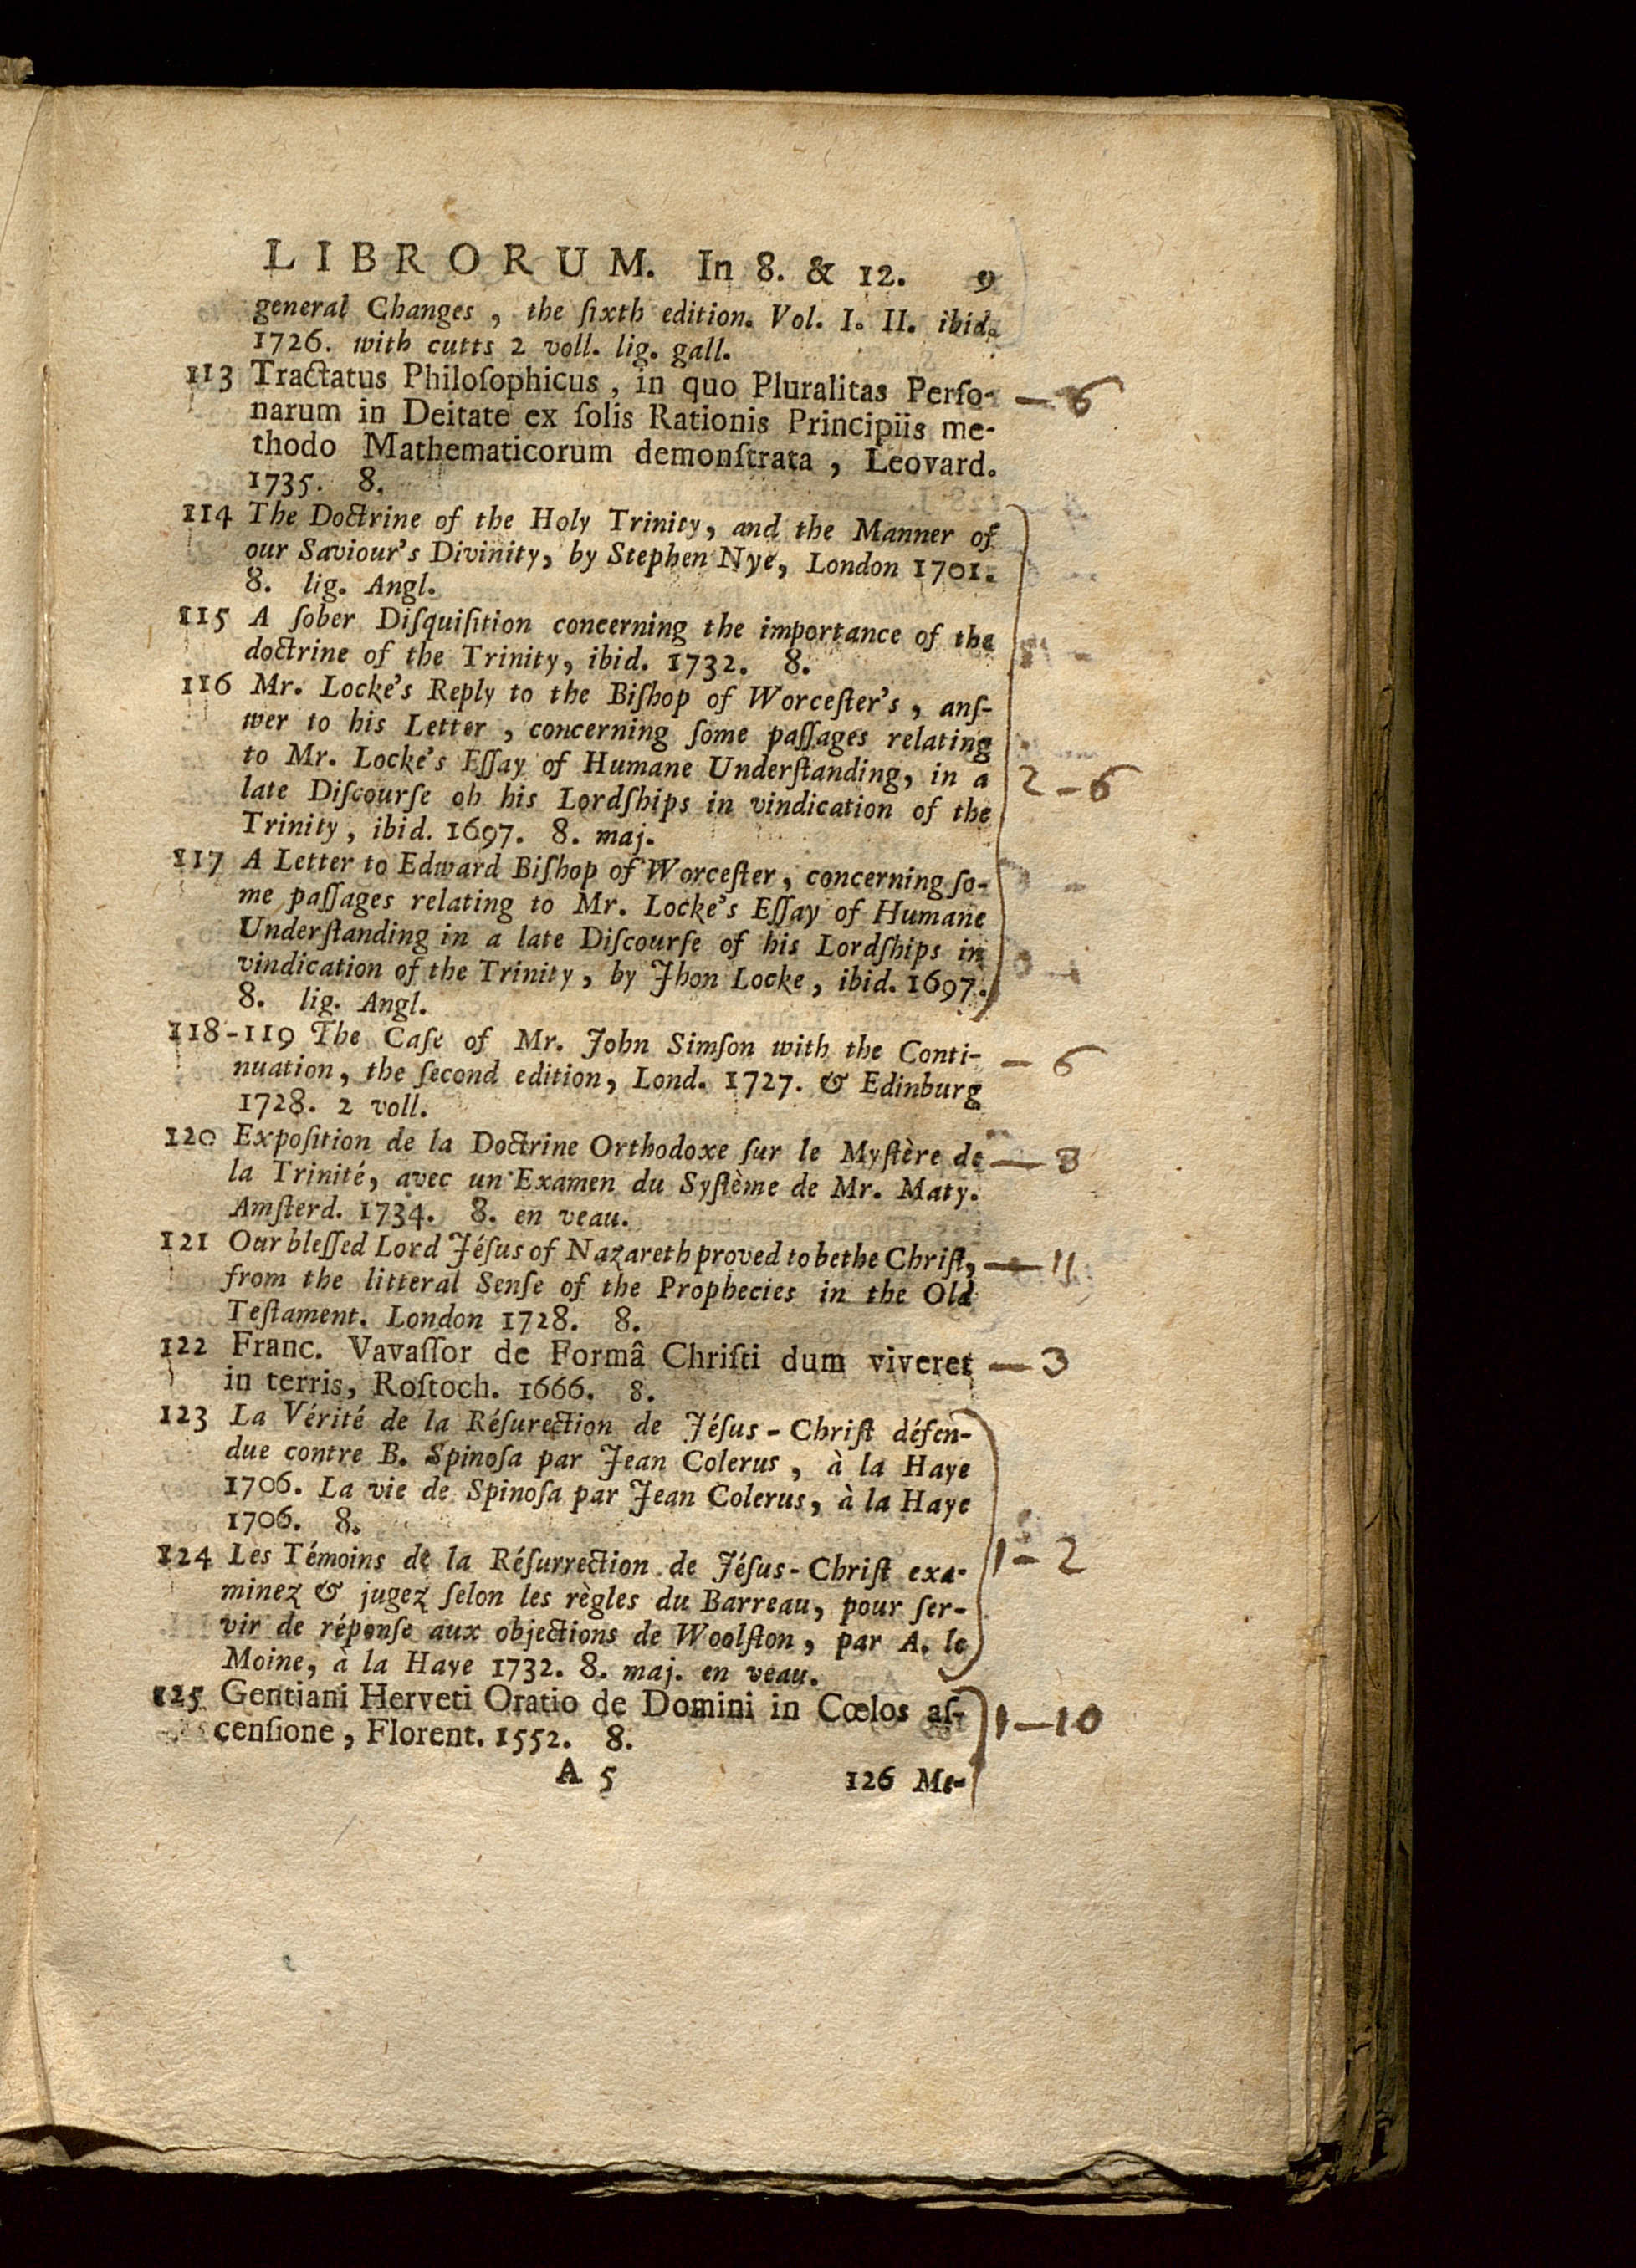 LIBRORUM. In 8. & 12. 9
general Changes, the ſixth edition. Vol. I. II. ibid.
1726. with cutts 2 voll. lig. gall.
113 Tractatus Philoſophicus, in quo Pluralitas Perſo- — 6
narum in Deitate ex ſolis Rationis Principiis me-
thodo Mathematicorum demonſtrata, Leovard.
1735. 8.
114 The Doctrine of the Holy Trinity, and the Manner of
our Saviour's Divinity, by Stephen Nye, London 1701.
8. lig. Angl.
115 A ſober Diſquiſition concerning the importance of the
doctrine of the Trinity, ibid. 1732. 8.
116 Mr. Locke's Reply to the Biſhop of Worceſter's, anſ-
wer to his Letter, concerning ſome paſſages relating
to Mr. Locke's Eſſay of Humane Underſtanding, in a 2 - 6
late Diſcourſe oh his Lordſhips in vindication of the
Trinity, ibid. 1697. 8. maj.
117 A Letter to Edward Biſhop of Worceſter, concerning ſo-
me paſſages relating to Mr. Locke's Eſſay of Humane
Underſtanding in a late Diſcourſe of his Lordſhips in
vindication of the Trinity, by Jhon Locke, ibid. 1697.
8. lig. Angl.
118-119 The Caſe of Mr. John Simſon with the Conti- — 6
nuation, the ſecond edition, Lond. 1727. & Edinburg
1728. 2 voll.
120 Expoſition de la Doctrine Orthodoxe ſur le Myſtère de — 3
la Trinité, avec un Examen du Syſtème de Mr. Maty.
Amſterd. 1734. 8. en veau.
121 Our bleſſed Lord Jéſus of Nazareth proved to bethe Chriſt, — 11
from the litteral Senſe of the Prophecies in the Old
Teſtament. London 1728. 8.
122 Franc. Vavaſſor de Formâ Chriſti dum viveret — 3
in terris, Roſtoch. 1666. 8.
123 La Vérité de la Réſurection de Jéſus-Chriſt défen-
due contre B. Spinoſa par Jean Colerus, à la Haye
1706. La vie de Spinoſa par Jean Colerus, à la Haye
1706. 8.
124 Les Témoins de la Réſurrection de Jéſus-Chriſt exa- 1 - 2
minez & jugez ſelon les règles du Barreau, pour ſer-
vir de réponſe aux objections de Woolſton, par A. le
Moine, à la Haye 1732. 8. maj. en veau.
125 Gentiani Herveti Oratio de Domini in Cœlos aſ- 1 — 10
cenſione, Florent. 1552. 8.
A 5 126 Me-